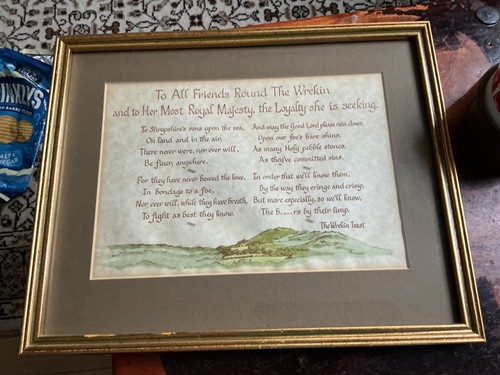 To All Friends Round The Wrekin
and to Her Most Royal Majesty, the Loyalty she is seeking.
To Shropshire's sons upon the sea,
On land and in the air,
There never were, nor ever will,
Be finer, anywhere.
For they have never bowed the knee,
In bondage to a foe,
Nor ever will, while they have breath,
To fight as best they know.
And may the Good Lord please rain down,
Upon our foe's bare shins,
As many Holy pebble stones,
As they've committed sins.
In order that we'll know them,
By the way they cringe and crimp,
But more especially, so we'll know,
The b....rs by their limp.
The Wrekin Toast